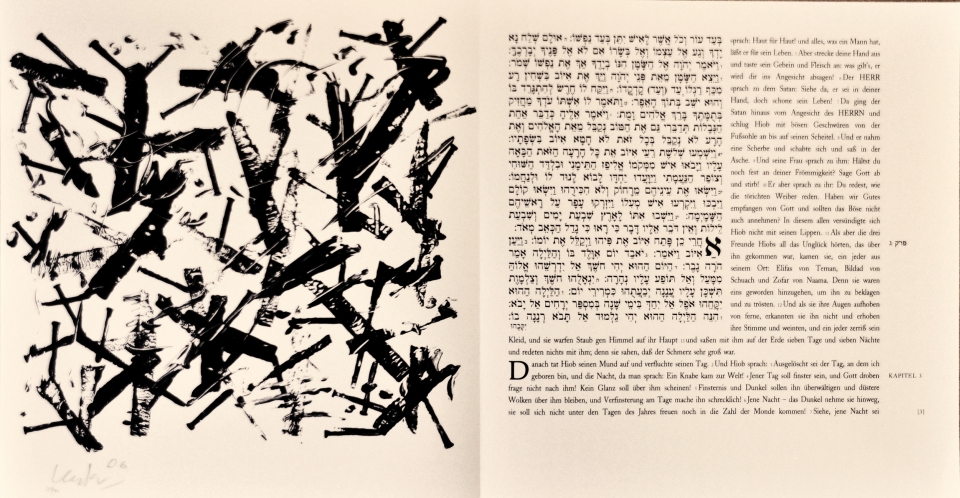 בְּעַד עוֹר וְכֹל אֲשֶׁר לָאִישׁ יִתֵּן בְּעַד נַפְשׁוֹ: אוּלָם שְׁלַח נָא
יָדְךָ וְגַע אֶל עַצְמוֹ וְאֶל בְּשָׂרוֹ אִם לֹא אֶל פָּנֶיךָ יְבָרְכֶךָּ:
וַיֹּאמֶר יְהוָֹה אֶל הַשָּׂטָן הִנּוֹ בְיָדֶךָ אַךְ אֶת נַפְשׁוֹ שְׁמֹר:
וַיֵּצֵא הַשָּׂטָן מֵאֵת פְּנֵי יְהוָֹה וַיַּךְ אֶת אִיּוֹב בִּשְׁחִין רָע
מִכַּף רַגְלוֹ עַד (וְעַד) קָדְקֳדוֹ: וַיִּקַּח לוֹ חֶרֶשׂ לְהִתְגָּרֵד בּוֹ
וְהוּא יֹשֵׁב בְּתוֹךְ הָאֵפֶר: וַתֹּאמֶר לוֹ אִשְׁתּוֹ עֹדְךָ מַחֲזִיק
בְּתֻמָּתֶךָ בָּרֵךְ אֱלֹהִים וָמֻת: וַיֹּאמֶר אֵלֶיהָ כְּדַבֵּר אַחַת
הַנְּבָלוֹת תְּדַבֵּרִי גַּם אֶת הַטּוֹב נְקַבֵּל מֵאֵת הָאֱלֹהִים וְאֶת
הָרָע לֹא נְקַבֵּל בְּכָל זֹאת לֹא חָטָא אִיּוֹב בִּשְׂפָתָיו:
וַיִּשְׁמְעוּ שְׁלֹשֶׁת רֵעֵי אִיּוֹב אֵת כָּל הָרָעָה הַזֹּאת הַבָּאָה
עָלָיו וַיָּבֹאוּ אִישׁ מִמְּקֹמוֹ אֱלִיפַז הַתֵּימָנִי וּבִלְדַּד הַשּׁוּחִי
וְצוֹפַר הַנַּעֲמָתִי וַיִּוָּעֲדוּ יַחְדָּו לָבוֹא לָנוּד לוֹ וּלְנַחֲמוֹ:
וַיִּשְׂאוּ אֶת עֵינֵיהֶם מֵרָחוֹק וְלֹא הִכִּירֻהוּ וַיִּשְׂאוּ קוֹלָם
וַיִּבְכּוּ וַיִּקְרְעוּ אִישׁ מְעִלוֹ וַיִּזְרְקוּ עָפָר עַל רָאשֵׁיהֶם
הַשָּׁמָיְמָה: וַיֵּשְׁבוּ אִתּוֹ לָאָרֶץ שִׁבְעַת יָמִים וְשִׁבְעַת
לֵילוֹת וְאֵין דֹּבֵר אֵלָיו דָּבָר כִּי רָאוּ כִּי גָדַל הַכְּאֵב מְאֹד:
אַחֲרֵי כֵן פָּתַח אִיּוֹב אֶת פִּיהוּ וַיְקַלֵּל אֶת יוֹמוֹ: וַיַּעַן
אִיּוֹב וַיֹּאמַר: יֹאבַד יוֹם אִוָּלֶד בּוֹ וְהַלַּיְלָה אָמַר
הֹרָה גָבֶר: הַיּוֹם הַהוּא יְהִי חֹשֶׁךְ אַל יִדְרְשֵׁהוּ אֱלוֹהַּ
מִמַּעַל וְאַל תּוֹפַע עָלָיו נְהָרָה: יִגְאָלֻהוּ חֹשֶׁךְ וְצַלְמָוֶת
תִּשְׁכָּן עָלָיו עֲנָנָה יְבַעֲתֻהוּ כִּמְרִירֵי יוֹם: הַלַּיְלָה הַהוּא
יִקָּחֵהוּ אֹפֶל אַל יִחַדְּ בִּימֵי שָׁנָה בְּמִסְפַּר יְרָחִים אַל יָבֹא:
הִנֵּה הַלַּיְלָה הַהוּא יְהִי גַלְמוּד אַל תָּבֹא רְנָנָה בוֹ:
יִקְּבֻהוּ
sprach: Haut für Haut! und alles, was ein Mann hat,
läßt er für sein Leben. Aber strecke deine Hand aus
und taste sein Gebein und Fleisch an: was gilt's, er
wird dir ins Angesicht absagen! Der HERR
sprach zu dem Satan: Siehe da, er sei in deiner
Hand, doch schone sein Leben! Da ging der
Satan hinaus vom Angesicht des HERRN und
schlug Hiob mit bösen Geschwüren von der
Fußsohle an bis auf seinen Scheitel. Und er nahm
eine Scherbe und schabte sich und saß in der
Asche. Und seine Frau sprach zu ihm: Hältst du
noch fest an deiner Frömmigkeit? Sage Gott ab
und stirb! Er aber sprach zu ihr: Du redest, wie
die törichten Weiber reden. Haben wir Gutes
empfangen von Gott und sollten das Böse nicht
auch annehmen? In diesem allen versündigte sich
Hiob nicht mit seinen Lippen. Als aber die drei
Freunde Hiobs all das Unglück hörten, das über
ihn gekommen war, kamen sie, ein jeder aus
seinem Ort: Elifas von Teman, Bildad von
Schuach und Zofar von Naama. Denn sie waren
eins geworden hinzugehen, um ihn zu beklagen
und zu trösten. Und als sie ihre Augen aufhoben
von ferne, erkannten sie ihn nicht und erhoben
ihre Stimme und weinten, und ein jeder zerriß sein
פרק ג
Kleid, und sie warfen Staub gen Himmel auf ihr Haupt und saßen mit ihm auf der Erde sieben Tage und sieben Nächte
und redeten nichts mit ihm; denn sie sahen, daß der Schmerz sehr groß war.
Danach tat Hiob seinen Mund auf und verfluchte seinen Tag. Und Hiob sprach: Ausgelöscht sei der Tag, an dem ich
geboren bin, und die Nacht, da man sprach: Ein Knabe kam zur Welt! Jener Tag soll finster sein, und Gott droben
KAPITEL 3
frage nicht nach ihm! Kein Glanz soll über ihm scheinen! Finsternis und Dunkel sollen ihn überwältigen und düstere
Wolken über ihm bleiben, und Verfinsterung am Tage mache ihn schrecklich! Jene Nacht – das Dunkel nehme sie hinweg,
sie soll sich nicht unter den Tagen des Jahres freuen noch in die Zahl der Monde kommen! Siehe, jene Nacht sei